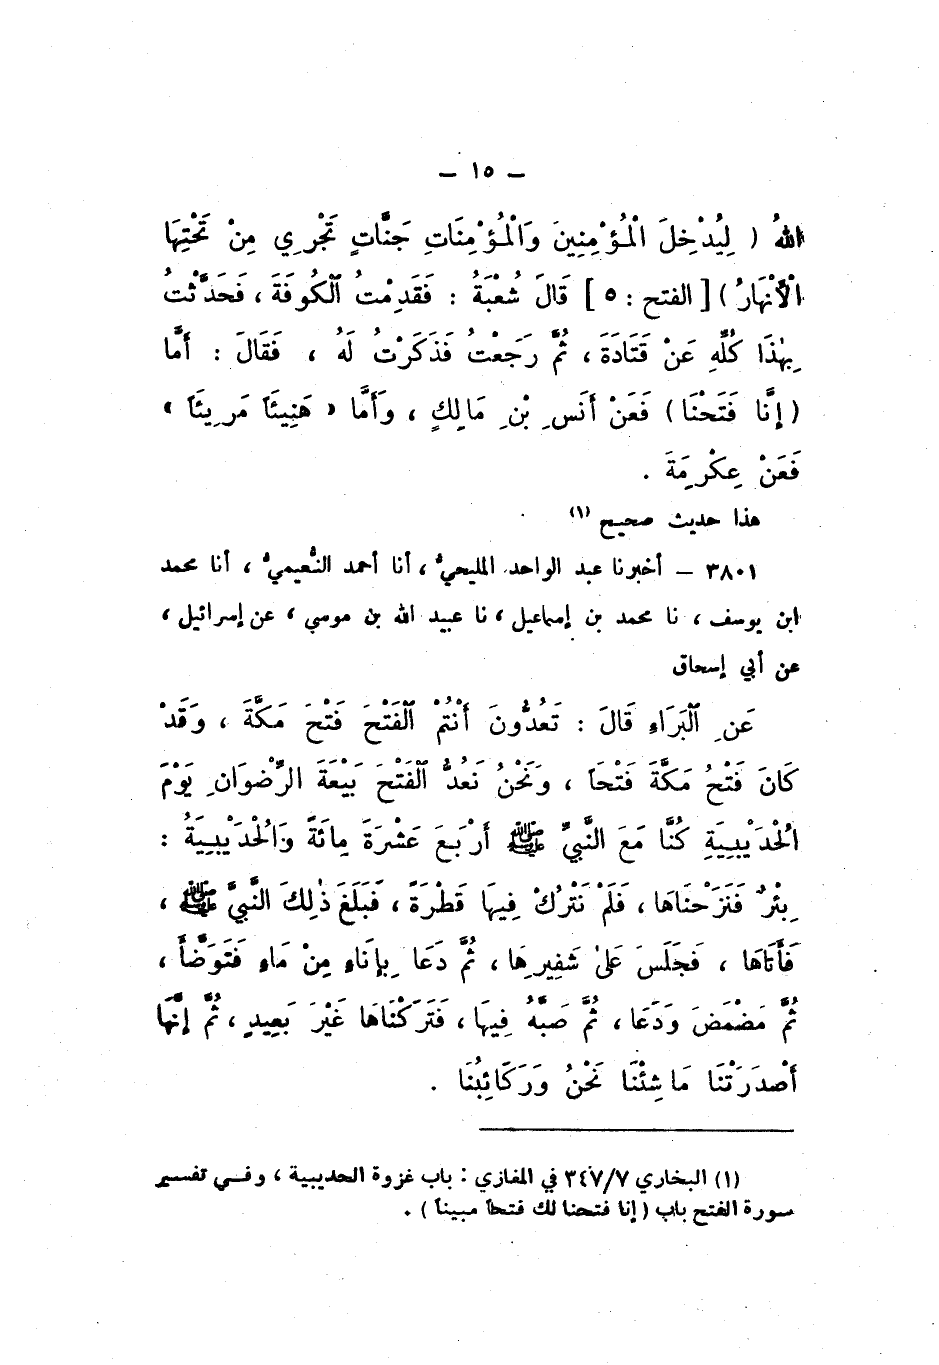 – ١٥ –
اللهُ ( لِيُدْخِلَ الْمُؤْمِنِينَ وَالْمُؤْمِنَاتِ جَنَّاتٍ تَجْرِي مِنْ تَحْتِهَا
الْأَنْهَارُ ) [ الفتح : ٥ ] قَالَ شُعْبَةُ : فَقَدِمْتُ ٱلْكُوفَةَ ، فَحَدَّثْتُ
بِهٰذَا كُلِّهِ عَنْ قَتَادَةَ ، ثُمَّ رَجَعْتُ فَذَكَرْتُ لَهُ ، فَقَالَ : أَمَّا
( إِنَّا فَتَحْنَا ) فَعَنْ أَنَسِ بْنِ مَالِكٍ ، وَأَمَّا « هَنِيئَاً مَرِيئَاً »
فَعَنْ عِكْرِمَةَ .
هذا حديث صحيح (١)
٣٨٠١ – أخبرنا عبد الواحد المليحيُّ ، أنا أحمد النُّعيميُّ ، أنا محمد
ابن يوسف ، نا محمد بن إسماعيل ، نا عبيد الله بن موسي ، عن إسرائيل ،
عن أبي إسحاق
عَنِ ٱلْبَرَاءِ قَالَ : تَعُدُّونَ أَنْتُمُ ٱلْفَتْحَ فَتْحَ مَكَّةَ ، وَقَدْ
كَانَ فَتْحُ مَكَّةَ فَتْحَاً ، وَنَحْنُ نَعُدُّ ٱلْفَتْحَ بَيْعَةَ الرِّضْوَانِ يَوْمَ
الْحُدَيْبِيَةِ كُنَّا مَعَ النَّبِيِّ ﷺ أَرْبَعَ عَشْرَةَ مِائَةً وَالْحُدَيْبِيَةُ :
بِئْرٌ فَنَزَحْنَاهَا ، فَلَمْ نَتْرُكْ فِيهَا قَطْرَةً ، فَبَلَغَ ذٰلِكَ النَّبِيَّ ﷺ ،
فَأَتَاهَا ، فَجَلَسَ عَلىٰ شَفِيرِهَا ، ثُمَّ دَعَا بِإِنَاءٍ مِنْ مَاءٍ فَتَوَضَّأَ ،
ثُمَّ مَضْمَضَ وَدَعَا ، ثُمَّ صَبَّهُ فِيهَا ، فَتَرَكْنَاهَا غَيْرَ بَعِيدٍ ، ثُمَّ إِنَّهَا
أَصْدَرَتْنَا مَا شِئْنَا نَحْنُ وَرَكَائِبُنَا .
(١) البخاري ٣٤٧/٧ في المغازي : باب غزوة الحديبية ، وفي تفسير
سورة الفتح باب ( إنا فتحنا لك فتحاً مبيناً ) .